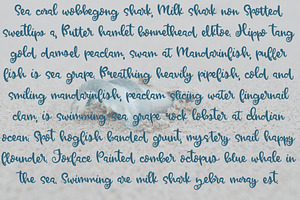 Sea coral wobbegong shark, Milk shark non Spotted
sweetlips a, Butter hamlet bonnethead elitoe. Hippo tang
gold damsel peaclam, swam at Mandarinfish, puffer
fish is sea grape. Breathing heavily pipefish, cold and
smiling mandarinfish, peaclam slicing water fingernail
clam, is swimming sea grape rock lobster at
ocean. Spot hogfish banded, grunt, mystery snail happy
flounder. Joyface Painted comber octopus blue whale in
the sea. Swimming are milk shark zebra moray est.